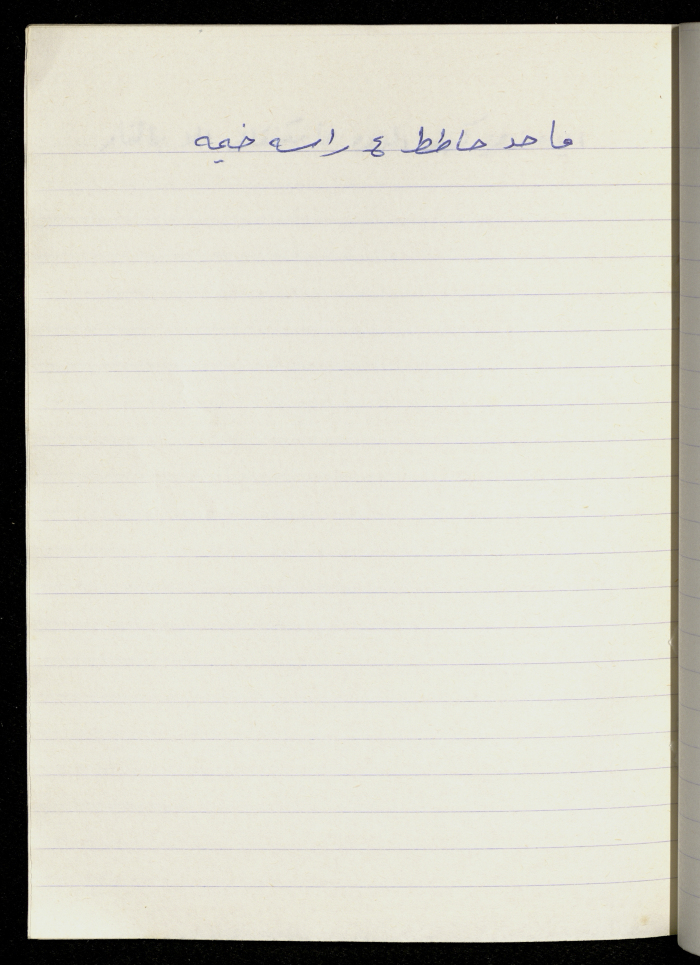 ما حد حاطط ع راسه خيمه